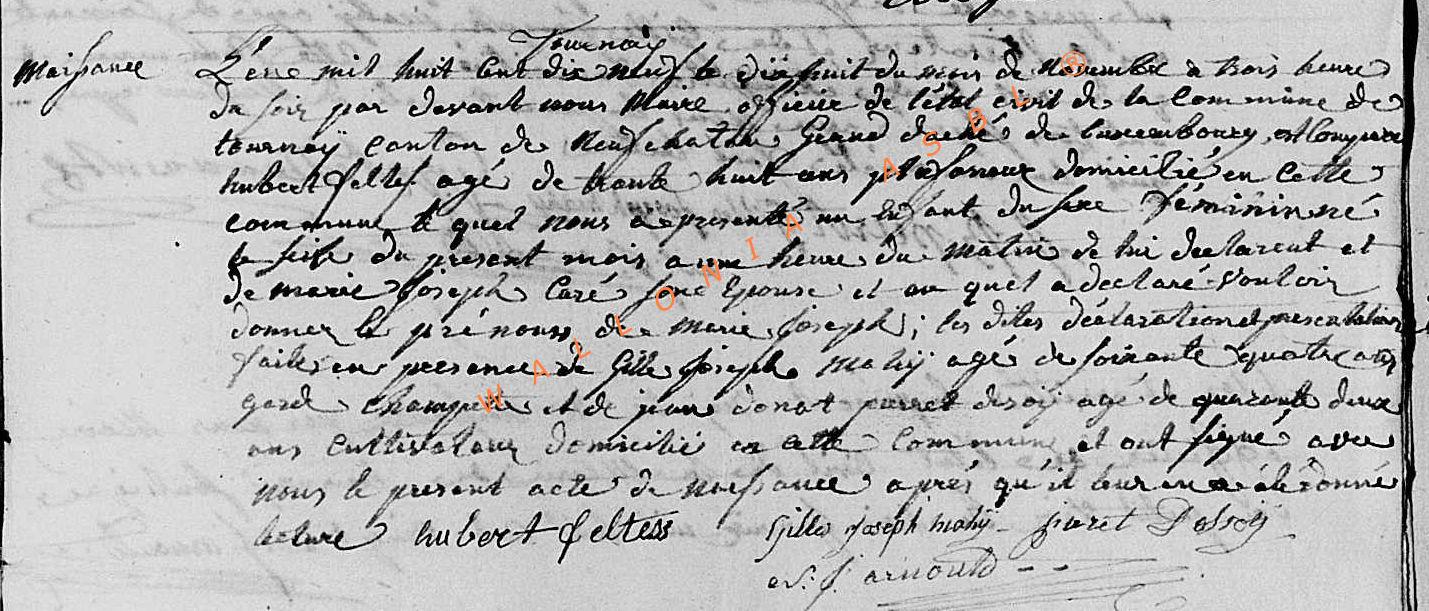 Tournay
Naissance
L'ene mil huit cent dix neuf le dix huit du mois de Novembre à trois heure
du soir par devant nous Maire officier de l'état civil de la Commune de
tournay Canton de Neufchateau Grand duché de Luxembourg, est Comparu
hubert feltes agé de trente huit ans domicilié en Cette
commune le quel nous a presenté un Enfant du sexe féminin né
le seise du present mois a une heure du matin de lui declarent et
de marie joseph Caré sone Epouse et au quel a declaré vouloir
donner le prénoms de Marie Joseph; les dites déclaration et presentation
faite en presence de Gille joseph Mahy agé de soixante quatre ans
gard Champetre et de jean donat pierret desoy agé de quarante deux
ans Cultivateur domicilié en cette Commune et ont signé avec
nous le present acte de naissance aprés qu'il leur en a été donné
lecture hubert feltess Gille joseph mahy piret Desoy
J. arnould
WALLONIA ASBL ®